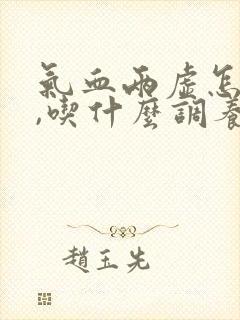 氣血兩虛怎
,喫什麼調養
趙玉先